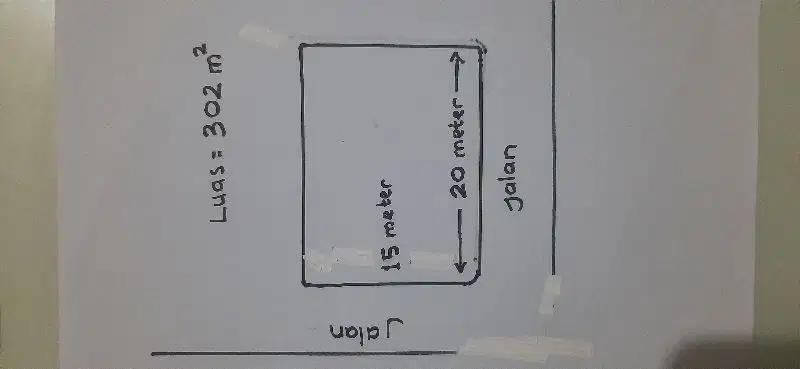 Luas = 302 m²
15 meter
20 meter
Jalan
Jalan